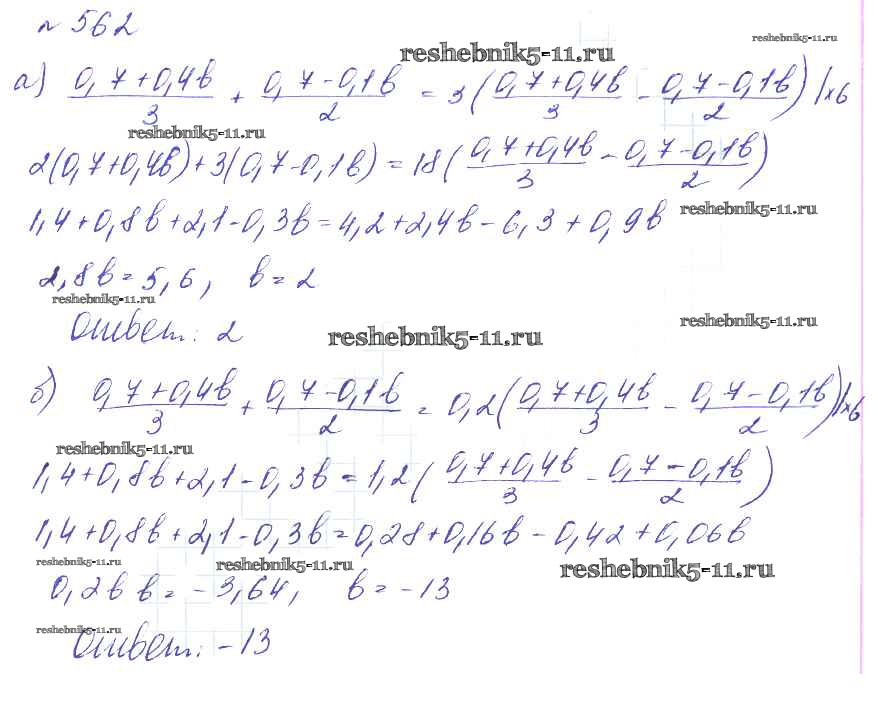 № 562
reshebnik5-11.ru
reshebnik5-11.ru
а) (0,7+0,4в)/3 + (0,7-0,1в)/2 = 3((0,7+0,4в)/3 - (0,7-0,1в)/2) |×6
reshebnik5-11.ru
2(0,7+0,4в)+3(0,7-0,1в)=18((0,7+0,4в)/3 - (0,7-0,1в)/2)
reshebnik5-11.ru
1,4+0,8в+2,1-0,3в=4,2+2,4в-6,3+0,9в
2,8в=5,6, в=2
reshebnik5-11.ru
reshebnik5-11.ru
Ответ: 2
reshebnik5-11.ru
б) (0,7+0,4в)/3 + (0,7-0,1в)/2 = 0,2((0,7+0,4в)/3 - (0,7-0,1в)/2) |×6
reshebnik5-11.ru
1,4+0,8в+2,1-0,3в=1,2((0,7+0,4в)/3 - (0,7-0,1в)/2)
1,4+0,8в+2,1-0,3в=0,28+0,16в-0,42+0,06в
reshebnik5-11.ru
reshebnik5-11.ru
reshebnik5-11.ru
0,2в в=-3,64, в=-13
reshebnik5-11.ru
Ответ: -13